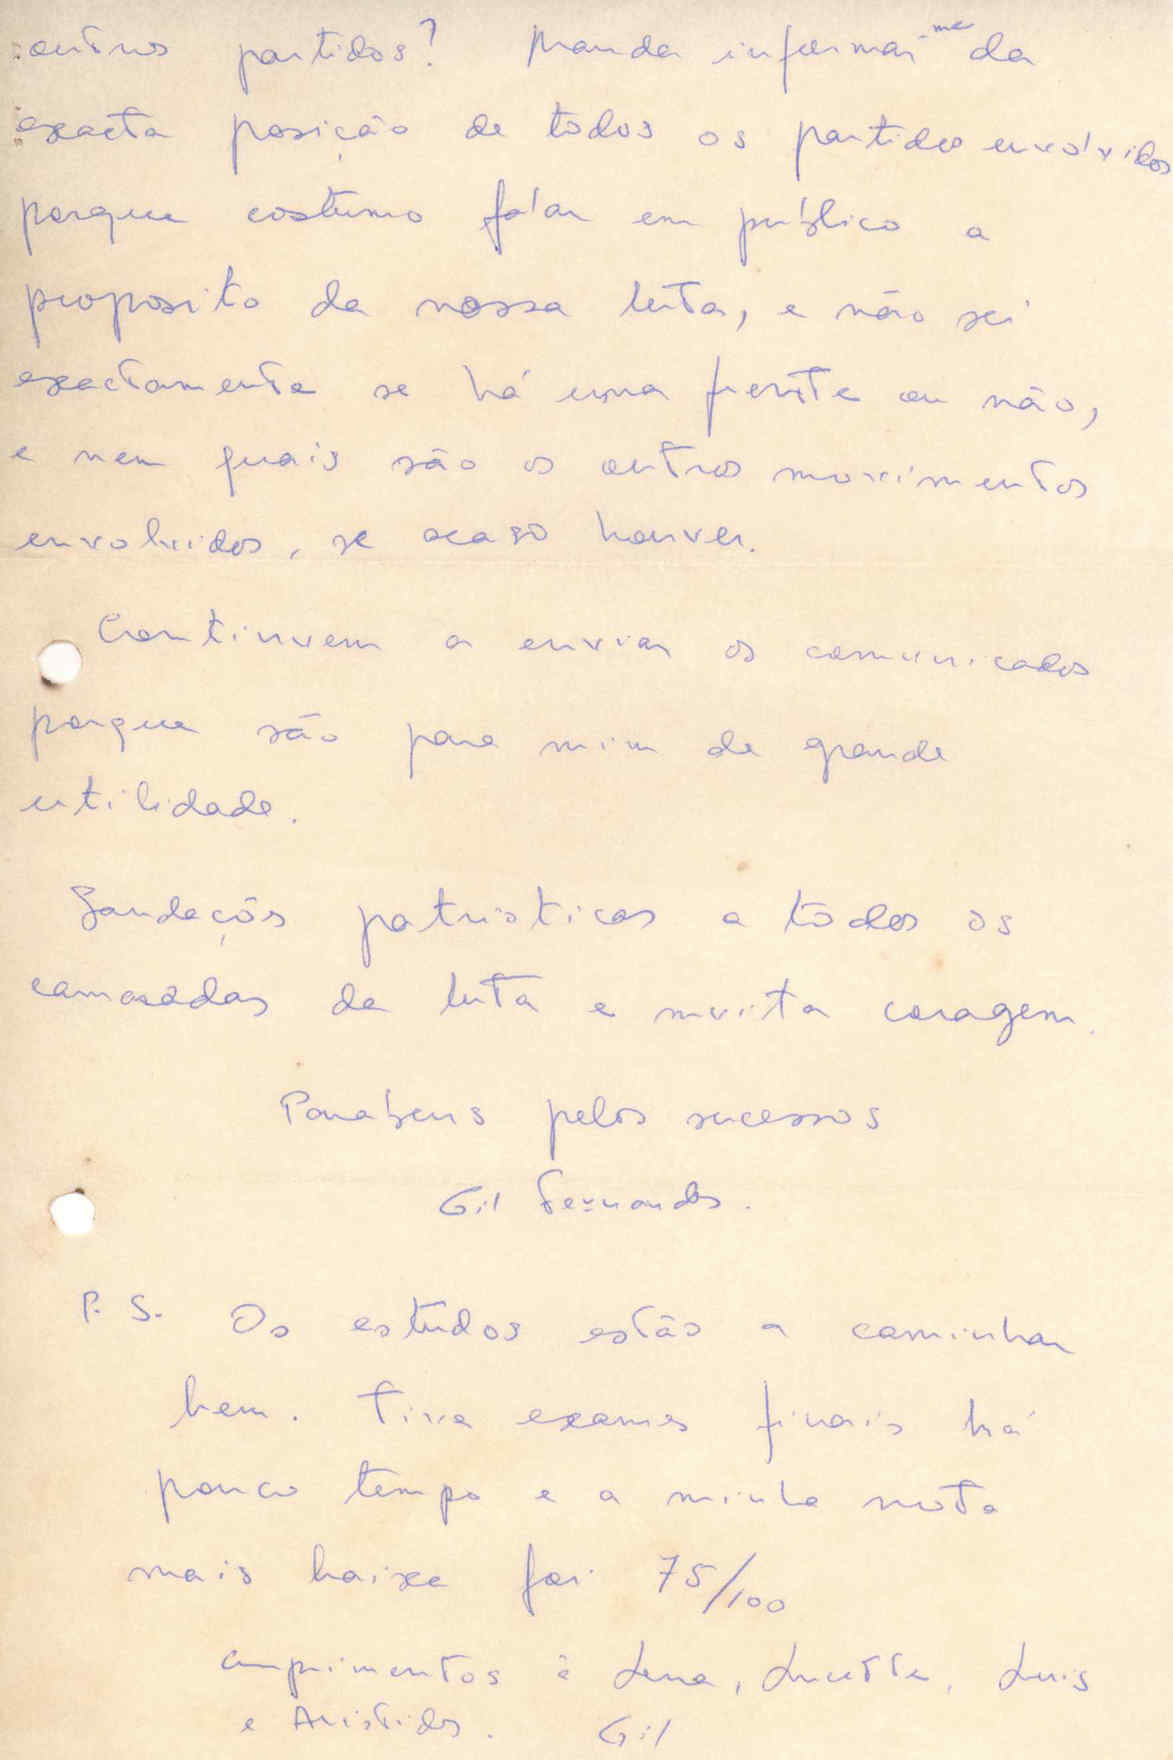 outros partidos? Manda informar-me da
exacta posição de todos os partidos envolvidos
porque costumo falar em público a
proposito da nossa luta, e não sei
exactamente se há uma frente ou não,
e nem quais são os outros movimentos
envolvidos, se acaso houver.
Continuem a enviar os comunicados
porque são para mim de grande
utilidade.
Saudaçõs patrioticas a todos os
camaradas de luta e muita coragem.
Parabens pelos sucessos
Gil Fernandes.
P.S. Os estudos estão a caminhar
bem. Tive exames finais há
pouco tempo e a minha nota
mais baixa foi 75/100
Cumprimentos à Lena, Lucette, Luis
e Aristides. Gil